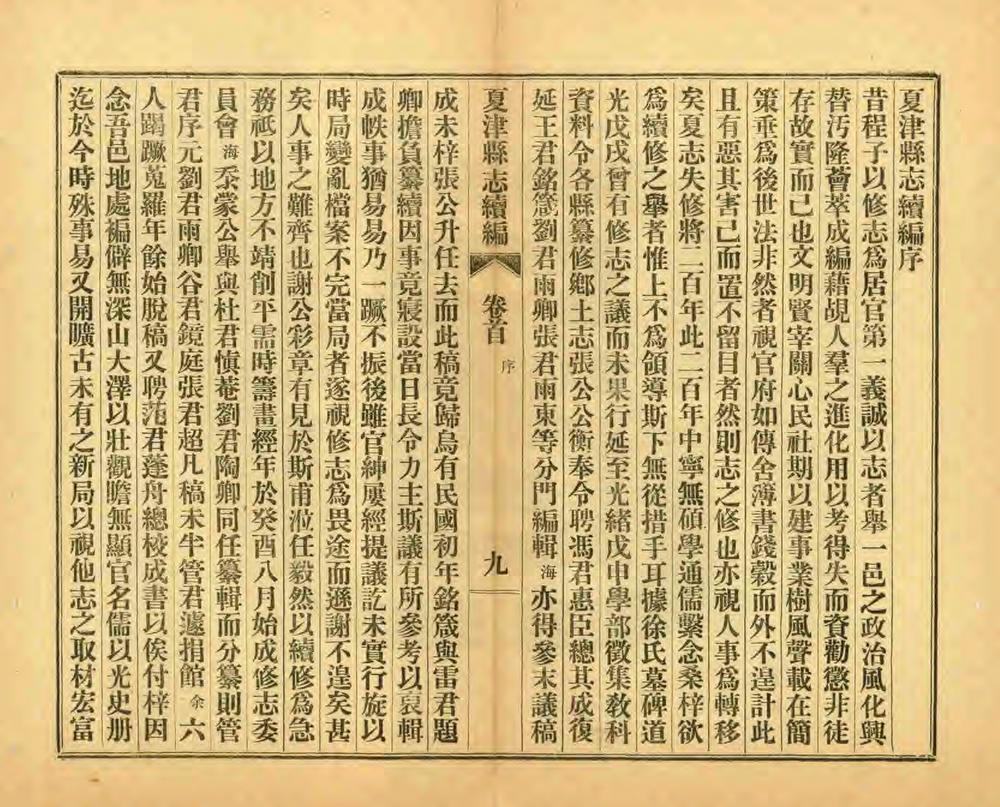 夏津縣志續編序
昔程子以修志爲居官第一義誠以志者舉一邑之政治風化興
替汚隆薈萃成編藉覘人羣之進化用以考得失而資勸懲非徒
存故實而已也文明賢宰關心民社期以建事業樹風聲載在簡
策垂爲後世法非然者視官府如傳舍簿書錢穀而外不遑計此
且有惡其害己而置不留目者然則志之修也亦視人事爲轉移
矣夏志失修將二百年此二百年中寧無碩學通儒繫念桑梓欲
爲續修之舉者惟上不爲領導斯下無從措手耳據徐氏墓碑道
光戊戌曾有修志之議而未果行延至光緒戊申學部徵集敎科
資料令各縣纂修鄉土志張公公衡奉令聘馮君惠臣總其成復
延王君銘箴劉君雨卿張君雨東等分門編輯海亦得參末議稿
夏津縣志續編 卷首 序 九
成未梓張公升任去而此稿竟歸烏有民國初年銘箴與雷君題
卿擔負纂續因事竟寢設當日長令力主斯議有所參考以裒輯
成帙事猶易易乃一蹶不振後雖官紳屢經提議訖未實行旋以
時局變亂檔案不完當局者遂視修志爲畏途而遜謝不遑矣甚
矣人事之難齊也謝公彩章有見於斯甫涖任毅然以續修爲急
務祇以地方不靖削平需時籌畫經年於癸酉八月始成修志委
員會海忝蒙公舉與杜君愼菴劉君陶卿同任纂輯而分纂則管
君序元劉君雨卿谷君鏡庭張君超凡稿未半管君遽捐館余六
人蹋蹶蒐羅年餘始脫稿又聘范君蓬舟總校成書以俟付梓因
念吾邑地處褊僻無深山大澤以壯觀瞻無顯官名儒以光史册
迄於今時殊事易又開曠古未有之新局以視他志之取材宏富